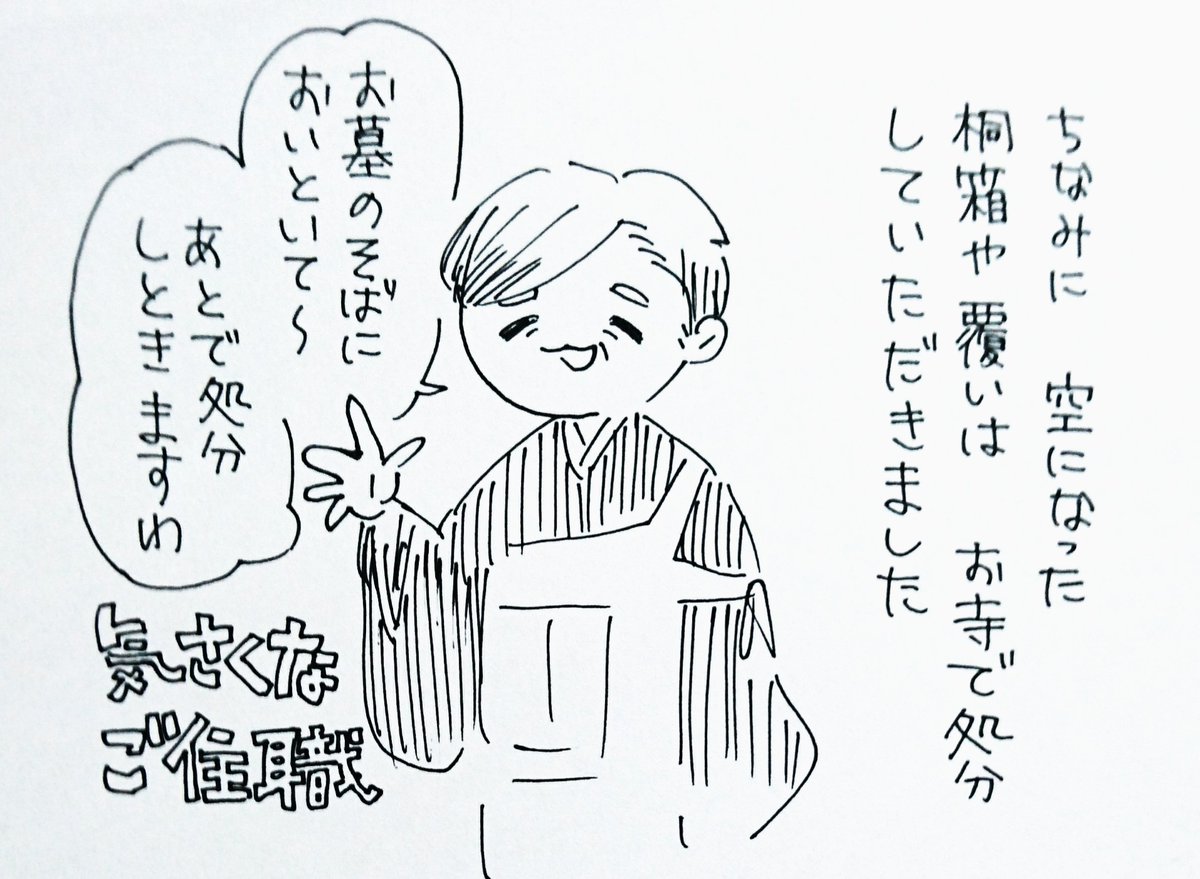 ちなみに 空になった
桐箱や覆いは お寺で処分
していただきました
お墓のそばに
おいといて〜
あとで処分
しときますわ
気さくな
ご住職